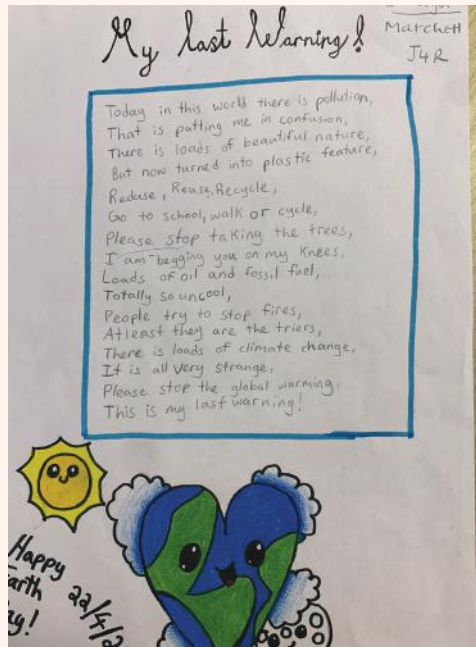 My last Warning!
Marchett
J4R
Today in this world there is pollution,
That is putting me in confusion,
There is loads of beautiful nature,
But now turned into plastic feature,
Reduse, Reuse, Recycle,
Go to school, walk or cycle,
Please stop taking the trees,
I am begging you on my knees,
Loads of oil and fossil fuel,
Totally so uncool,
People try to stop fires,
Atleast they are the triers,
There is loads of climate change,
It is all very strange,
Please stop the global warming,
This is my last warning!
Happy
Earth
22/4/2